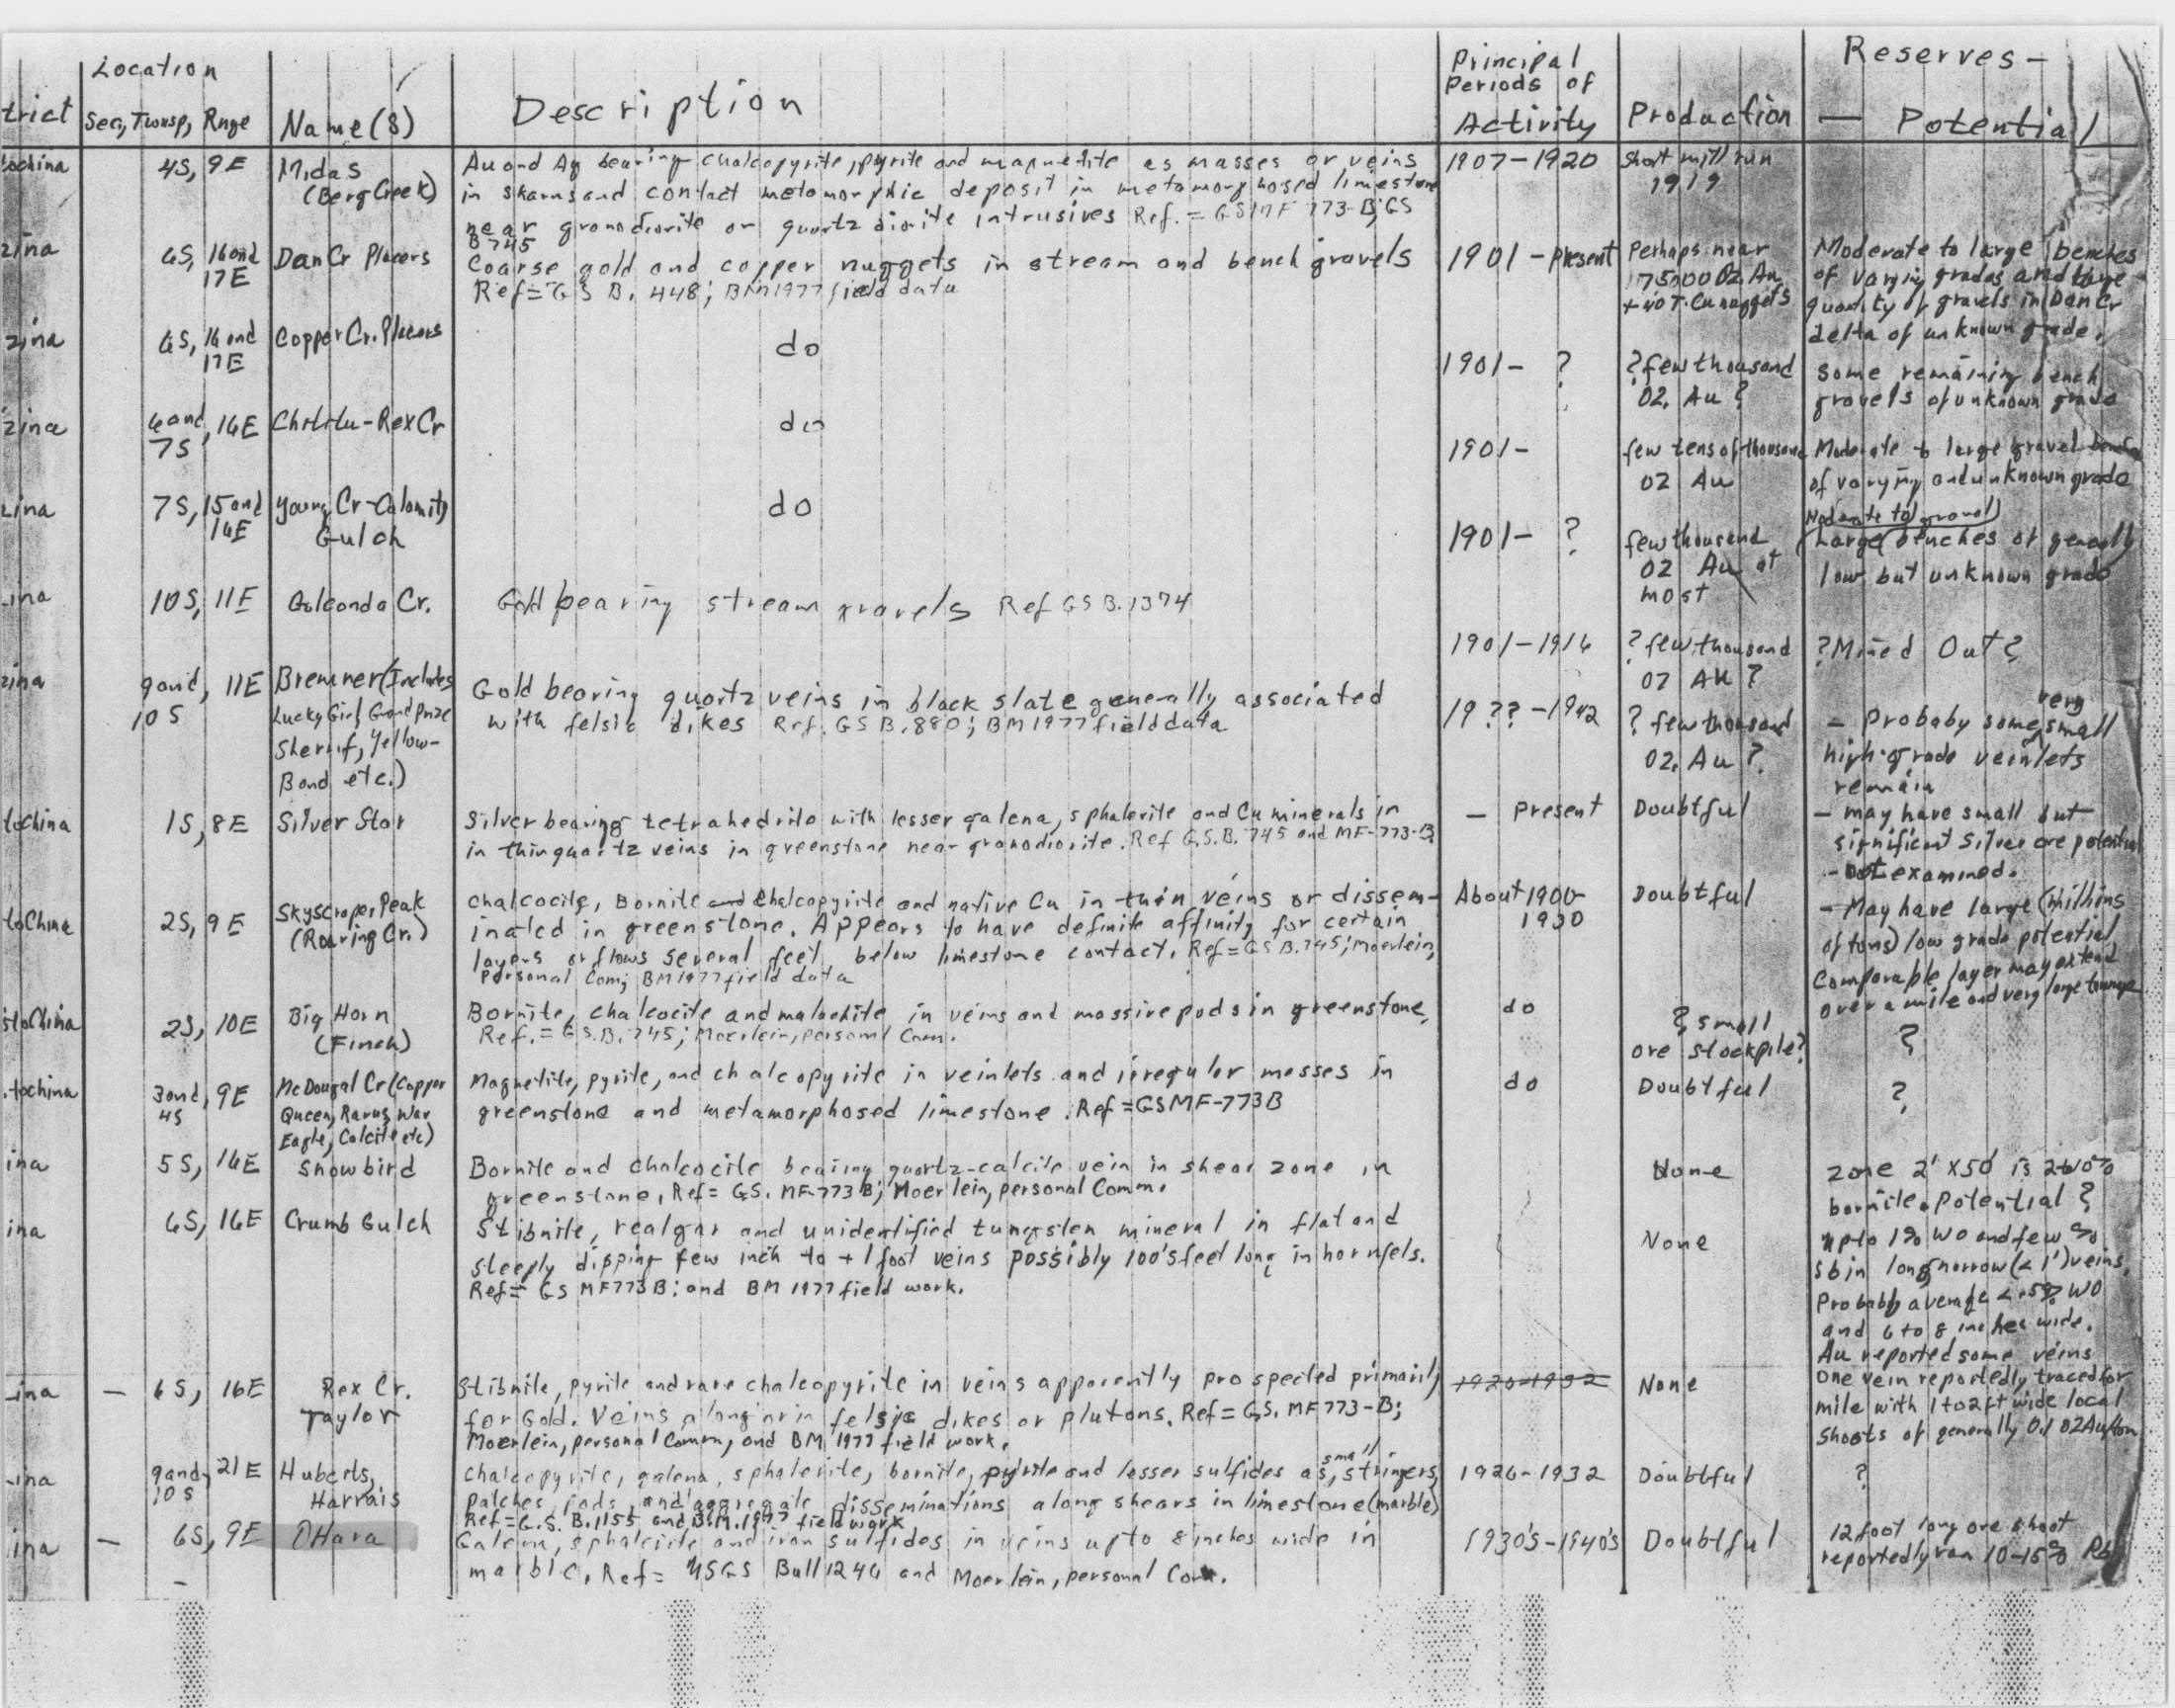 Location
Principal
Periods of
Activity
Reserves —
trict Sec, Twnsp, Rnge Name(s) Description Production — Potential
tochina 4S, 9E Midas (Berg Creek)
Au and Ag bearing chalcopyrite, pyrite and magnetite as masses or veins
in skarns and contact metamorphic deposit in metamorphosed limestone
near granodiorite or quartz diorite intrusives Ref. = GS MF 773-B; GS
B 745
1907-1920
Short mill run
1919
zina 6S, 16 and 17E Dan Cr Placers
Coarse gold and copper nuggets in stream and bench gravels
Ref = GS B. 448; BM 1977 field data
1901 - present
Perhaps near
175,000 oz. Au
+ 40 T. Cu nuggets
Moderate to large benches
of varying grades and large
quantity of gravels in Dan Cr
delta of unknown grade.
zina 6S, 16 and 17E Copper Cr. Placers
do
1901 - ?
? few thousand
oz. Au ?
Some remaining bench
gravels of unknown grade
zina 6 and 7S, 16E Chititu-Rex Cr
do
1901-
few tens of thousand
oz Au
Moderate to large gravel
of varying and unknown grade
zina 7S, 15 and 16E Young Cr-Calamity
Gulch
do
1901- ?
few thousand
oz Au at
most
Moderate to gravel
Large benches of generally
low but unknown grade
ina 10S, 11E Golconda Cr.
Gold bearing stream gravels Ref GS B. 1374
1901-1916
? few thousand
oz Au ?
? Mined Out ?
zina 9 and 10S, 11E Bremner (Includes
Lucky Girl, Grand Prize
Sherrif, Yellow-
Band etc.)
Gold bearing quartz veins in black slate generally associated
with felsic dikes Ref. GS B. 880; BM 1977 field data
19??-1942
? few thousand
oz. Au ?
very
- Probaby some small
high-grade veinlets
remain
tochina 1S, 8E Silver Star
Silver bearing tetrahedrite with lesser galena, sphalerite and Cu minerals in
in thin quartz veins in greenstone near granodiorite. Ref G.S.B. 745 and MF-773-B
- Present
Doubtful
- may have small but
significant Silver ore potential
- not examined.
toChina 2S, 9E Skyscraper Peak
(Roaring Cr.)
Chalcocite, Bornite and Chalcopyrite and native Cu in thin veins or dissem-
inated in greenstone. Appears to have definite affinity for certain
layers or flows several feet below limestone contact. Ref = GS B. 745; Moerlein,
personal Com; BM 1977 field data
About 1900-
1930
Doubtful
- May have large (millions
of tons) low grade potential
Comparable layer may extend
over a mile and very large tonnage
stoChina 2S, 10E Big Horn
(Finch)
Bornite, chalcocite and malachite in veins and massive pods in greenstone,
Ref. = G.S.B. 745; Moerlein, personal Com.
do
? small
ore stockpile?
?
tochina 3 and 4S, 9E McDougal Cr (Copper
Queen, Rarus, War
Eagle, Calcite etc)
Magnetite, pyrite, and chalcopyrite in veinlets and irregular masses in
greenstone and metamorphosed limestone. Ref = GS MF-773B
do
Doubtful
?
ina 5S, 16E Snowbird
Bornite and chalcocite bearing quartz-calcite vein in shear zone in
greenstone, Ref = GS. MF-773B; Moerlein, personal Comm.
None
zone 2' x 50' is
bornite. potential ?
ina 6S, 16E Crumb Gulch
Stibnite, realgar and unidentified tungsten mineral in flat and
steeply dipping few inch to +1 foot veins possibly 100's feet long in hornfels.
Ref = GS MF773B; and BM 1977 field work.
None
up to 1% WO and few %
Sb in long narrow (<1') veins,
Probably average <.5% WO
and 6 to 8 inches wide.
Au reported some veins
ina - 6S, 16E Rex Cr.
Taylor
Stibnite, pyrite and rare chalcopyrite in veins apparently prospected primarily
for Gold. Veins along or in felsic dikes or plutons. Ref = G.S. MF 773-B;
Moerlein, personal Comm, and BM 1977 field work.
None
One vein reportedly traced for
mile with 1 to 2 ft wide local
shoots of generally 0.1 oz Au/ton
ina 9 and 10S, 21E Huberts,
Harrais
small
Chalcopyrite, galena, sphalerite, bornite, pyrite and lesser sulfides as, stringers,
patches, pods, and aggregate disseminations along shears in limestone (marble)
Ref = G.S. B. 1155 and B.M. 1977 field work
1926-1932
Doubtful
?
ina - 6S, 9E OHara
Galena, sphalerite and iron sulfides in veins up to 8 inches wide in
marble, Ref = USGS Bull 1246 and Moerlein, personal Com.
1930's-1940's
Doubtful
12 foot long ore shoot
reportedly ran 10-15% Pb